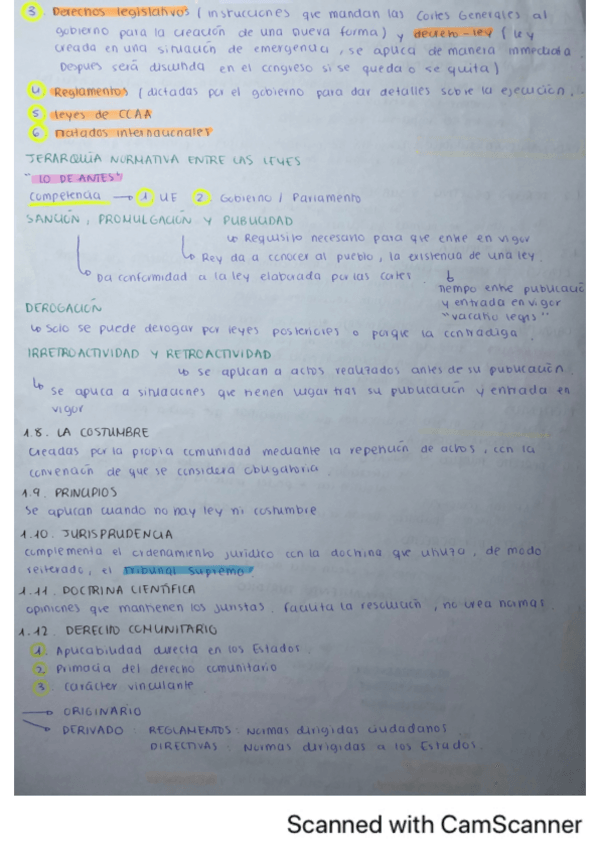 3 Derechos legislativos (instrucciones que mandan las Cortes Generales al
gobierno para la creación de una nueva forma) y decreto-ley (ley
creada en una situación de emergencia, se aplica de manera inmediata.
Después será discutida en el congreso si se queda o se quita)
4 Reglamentos (dictadas por el gobierno para dar detalles sobre la ejecución.
5 leyes de CCAA
6 Tratados internacionales
JERARQUÍA NORMATIVA ENTRE LAS LEYES
"LO DE ANTES"
Competencia → 1 UE 2. Gobierno / Parlamento
SANCIÓN, PROMULGACIÓN Y PUBLICIDAD
↳ Requisito necesario para que entre en vigor
↳ Rey da a conocer al pueblo, la existencia de una ley.
↳ Da conformidad a la ley elaborada por las cortes.
Tiempo entre publicació
y entrada en vigor
"vacatio legis"
DEROGACIÓN
↳ Solo se puede derogar por leyes posteriores o porque la contradiga.
IRRETROACTIVIDAD Y RETROACTIVIDAD
↳ se aplican a actos realizados antes de su publicación.
↳ se aplica a situaciones que tienen lugar tras su publicación y entrada en
vigor
1.8. LA COSTUMBRE
Creadas por la propia comunidad mediante la repetición de actos, con la
convención de que se considera obligatoria.
1.9. PRINCIPIOS
Se aplican cuando no hay ley ni costumbre
1.10. JURISPRUDENCIA
Complementa el ordenamiento jurídico con la doctrina que utiliza, de modo
reiterado, el Tribunal Supremo.
1.11. DOCTRINA CIENTÍFICA
opiniones que mantienen los juristas. Facilita la resolución, no crea normas.
1.12. DERECHO COMUNITARIO
1. Aplicabilidad directa en los Estados.
2. Primacía del derecho comunitario
3. Carácter vinculante
→ ORIGINARIO
→ DERIVADO: REGLAMENTOS: Normas dirigidas ciudadanos
DIRECTIVAS: Normas dirigidas a los Estados.
Scanned with CamScanner